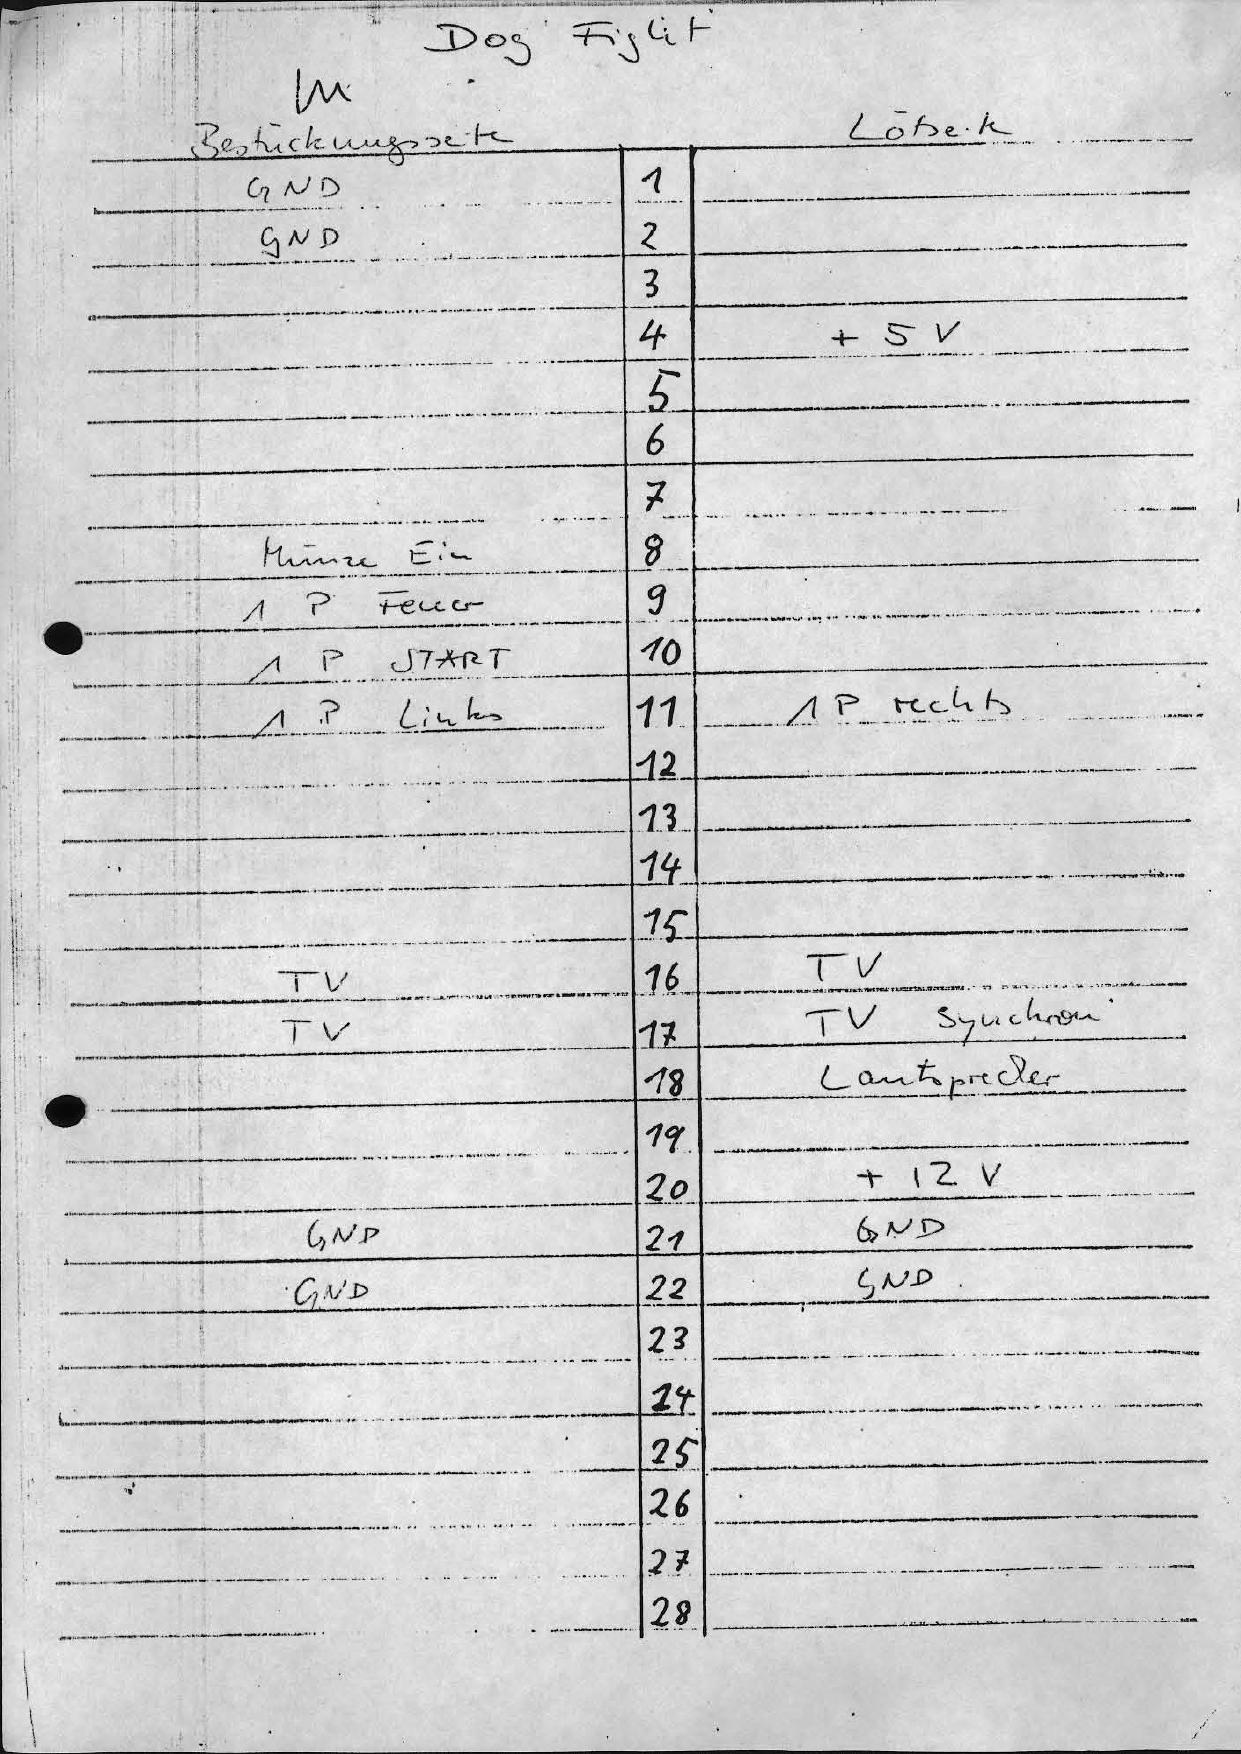 Dog Fight
Bestückungsseite Lötseite
GND 1
GND 2
3
4 + 5 V
5
6
7
Münze Ein 8
1 P Feuer 9
1 P START 10
1 P Links 11 1 P rechts
12
13
14
15
TV 16 TV
TV 17 TV Synchron
18 Lautsprecher
19
20 + 12 V
GND 21 GND
GND 22 GND
23
24
25
26
27
28